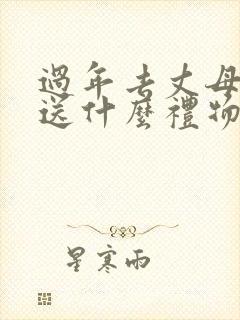 過年去丈母
送什麼禮物
星寒雨